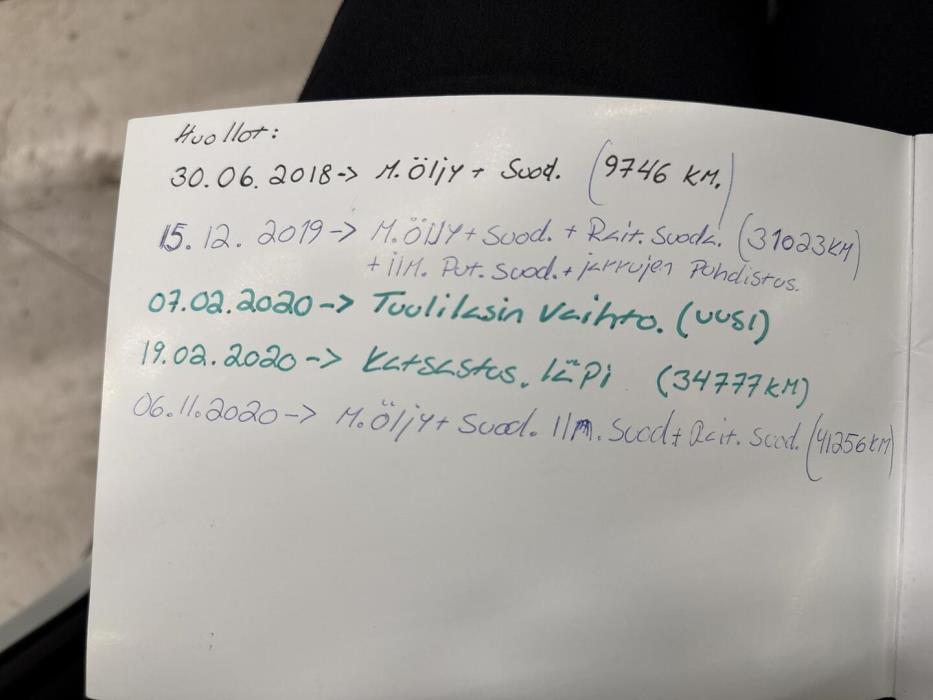 Huollot:
30.06.2018-> M.Öljy + Suod. (9746 KM.)
15.12.2019-> M.Öljy + Suod. + Rait. Suoda. (31023KM)
+ ilM. Put. Suod. + jarrujen Puhdistus.
07.02.2020-> Tuulilasin Vaihto. (UUSI)
19.02.2020-> Katsastus. läpi (34777KM)
06.11.2020-> M.Öljy + Suod. IlM. Suod + Rait. Suod. (41256KM)